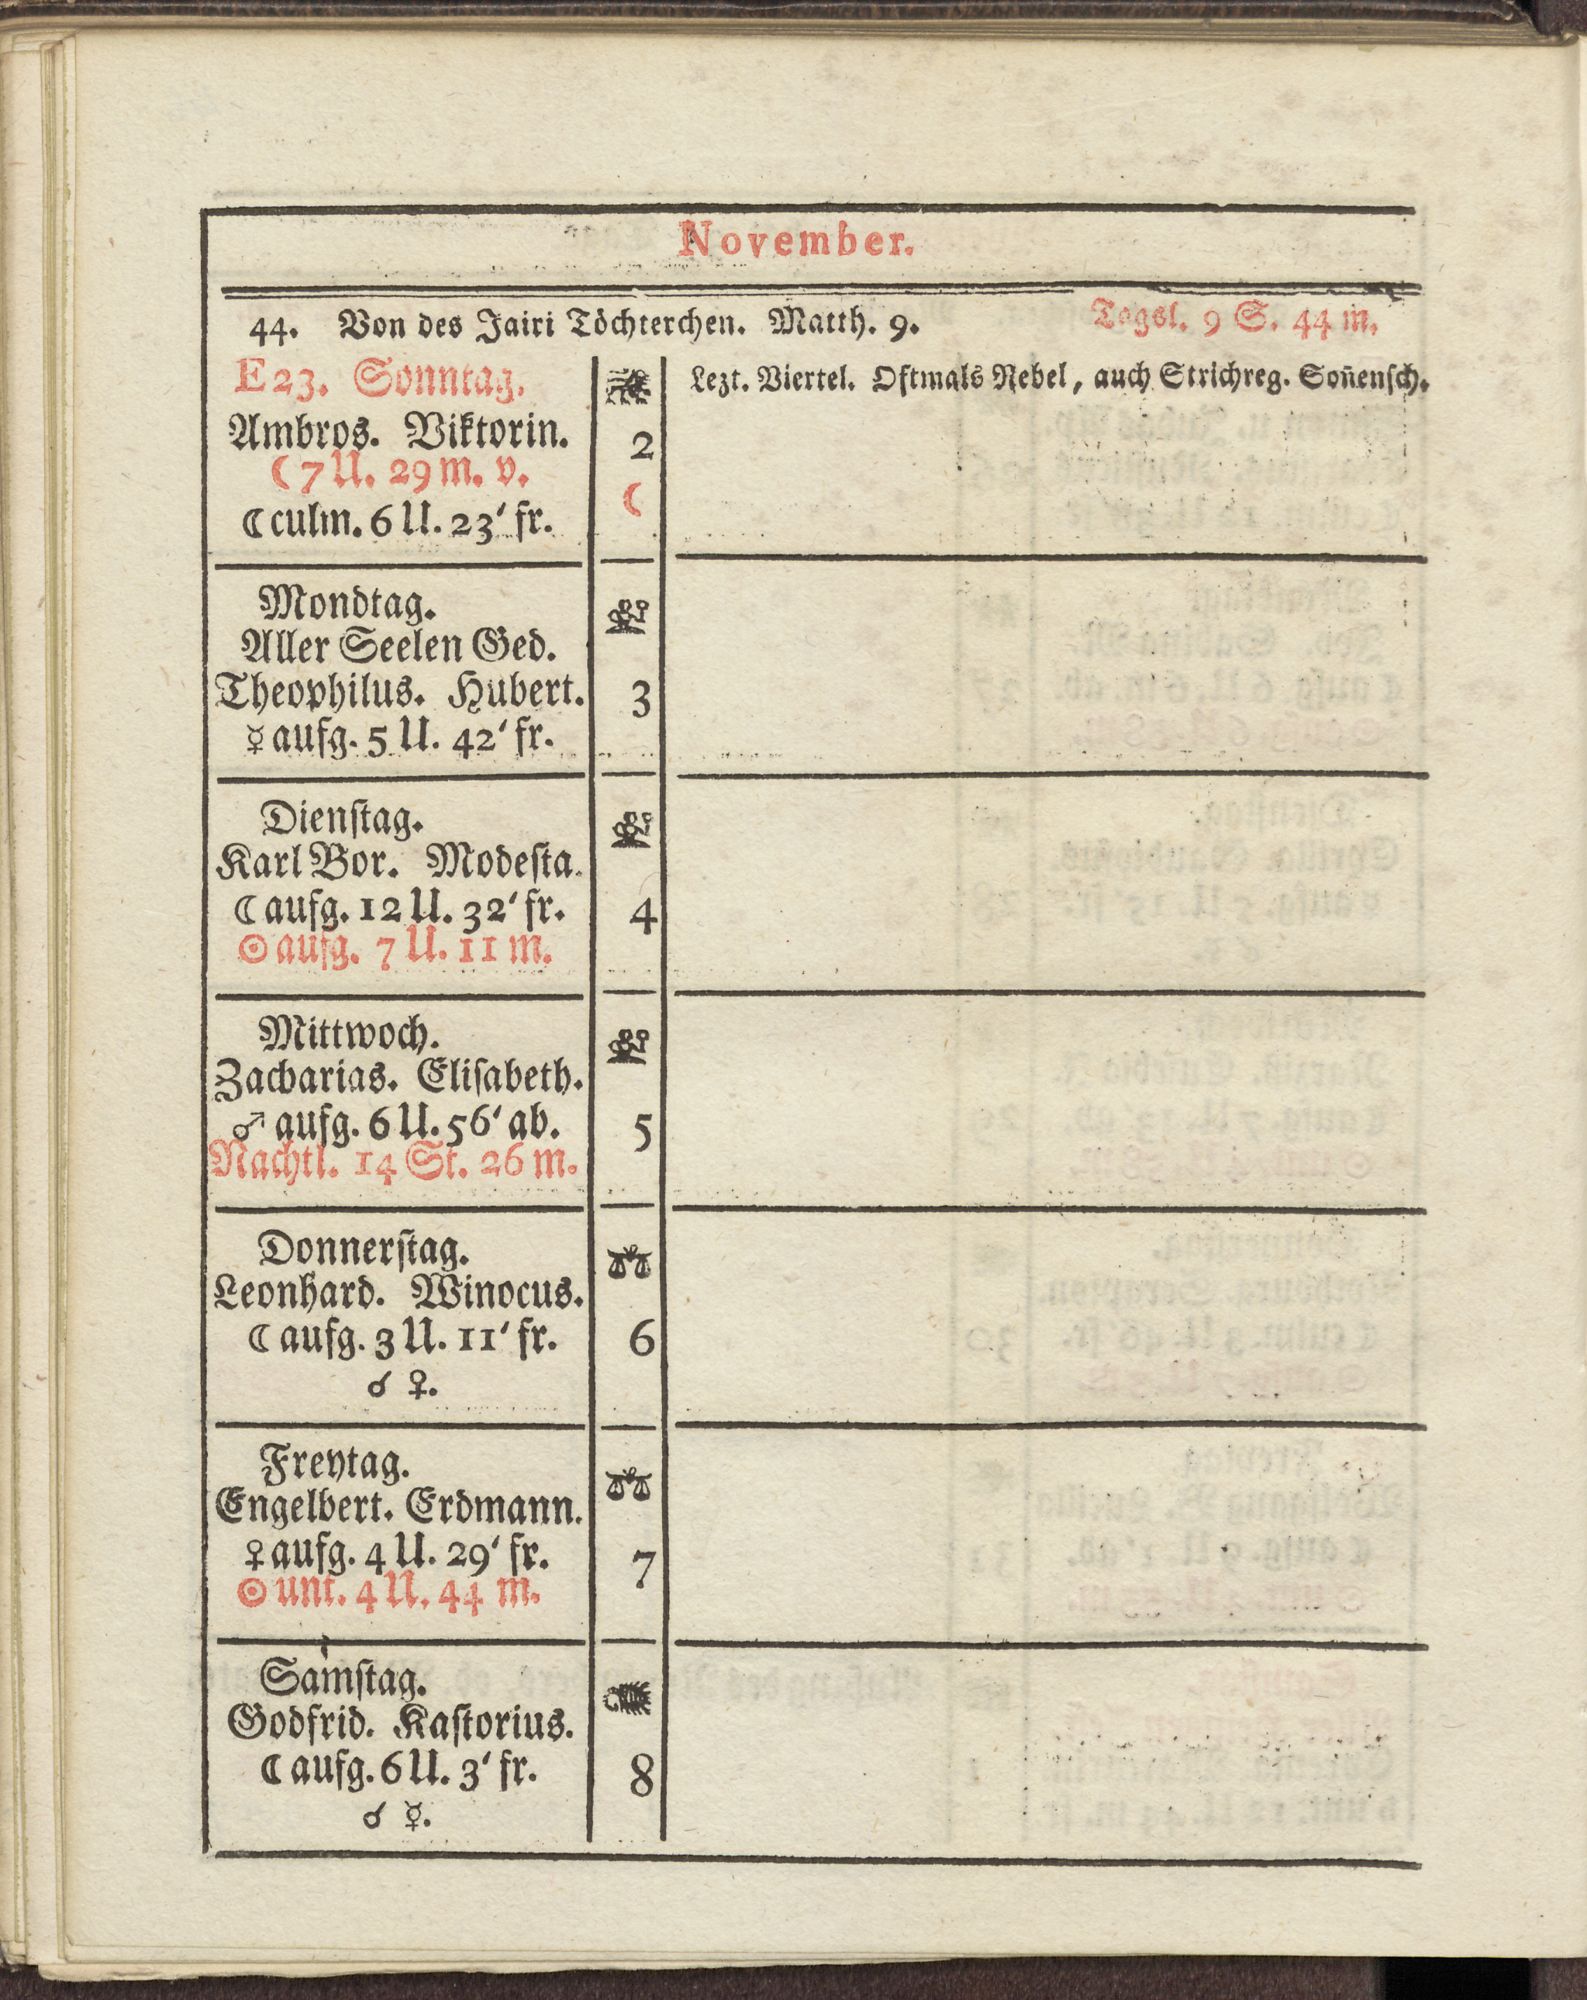 November.
44. Von des Jairi Töchterchen. Matth. 9. Tagsl. 9 S. 44 m.
E 23. Sonntag. Lezt. Viertel. Oftmals Nebel, auch Strichreg. Son̄enſch.
Ambros. Viktorin. 2
☾ 7 U. 29 m. v. ☾
☾ culm. 6 U. 23' fr.
Mondtag.
Aller Seelen Ged.
Theophilus. Hubert. 3
☿ aufg. 5 U. 42' fr.
Dienſtag.
Karl Bor. Modeſta.
☾ aufg. 12 U. 32' fr. 4
☉ aufg. 7 U. 11 m.
Mittwoch.
Zacharias. Eliſabeth.
♂ aufg. 6 U. 56' ab. 5
Nachtl. 14 St. 26 m.
Donnerſtag.
Leonhard. Winocus.
☾ aufg. 3 U. 11' fr. 6
☌ ♀.
Freytag.
Engelbert. Erdmann.
♀ aufg. 4 U. 29' fr. 7
☉ unt. 4 U. 44 m.
Samſtag.
Godfrid. Kaſtorius.
☾ aufg. 6 U. 3' fr. 8
☌ ☿.